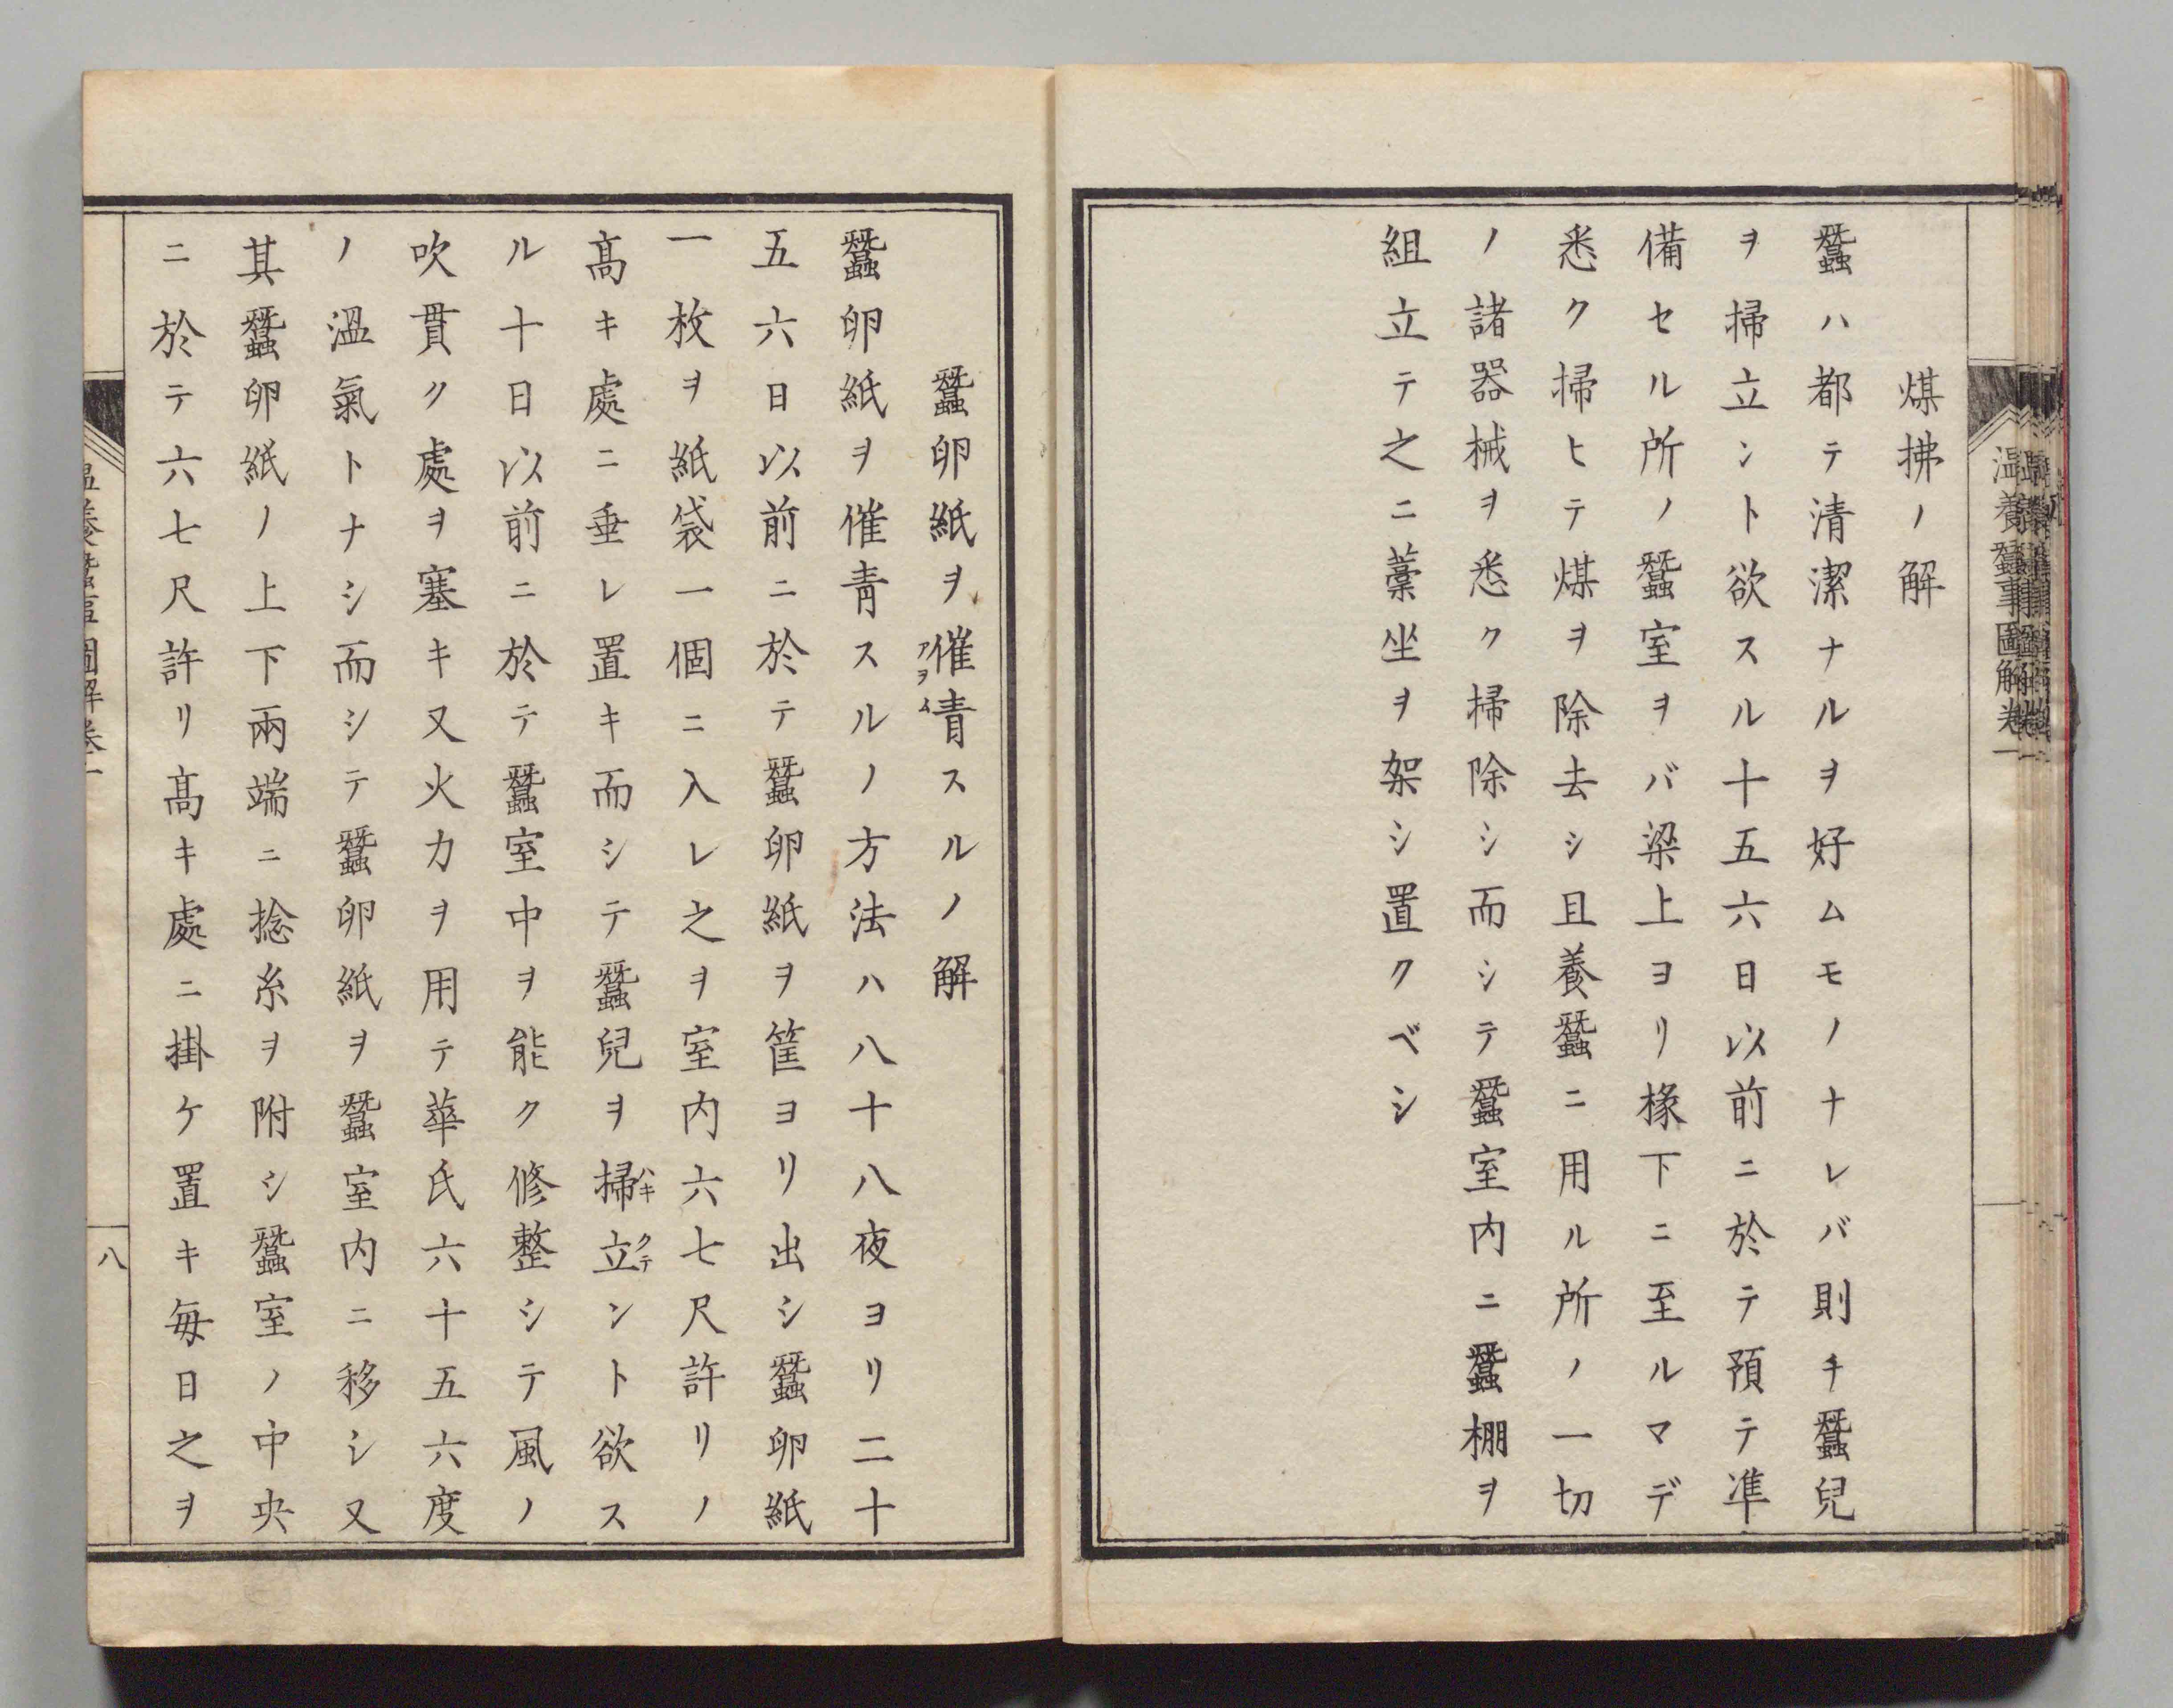 温養蠶事圖解卷一
煤拂ノ解
蠶ハ都テ清潔ナルヲ好ムモノナレバ則チ蠶兒
ヲ掃立ント欲スル十五六日以前ニ於テ預テ凖
備セル所ノ蠶室ヲバ梁上ヨリ椽下ニ至ルマデ
悉ク掃ヒテ煤ヲ除去シ且養蠶ニ用ル所ノ一切
ノ諸器械ヲ悉ク掃除シ而シテ蠶室内ニ蠶棚ヲ
組立テ之ニ藁坐ヲ架シ置クベシ
蠶卵紙ヲ催青スルノ解
アヲム
蠶卵紙ヲ催青スルノ方法ハ八十八夜ヨリ二十
五六日以前ニ於テ蠶卵紙ヲ筐ヨリ出シ蠶卵紙
一枚ヲ紙袋一個ニ入レ之ヲ室内六七尺許リノ
高キ處ニ垂レ置キ而シテ蠶兒ヲ掃立ント欲ス
ハキクテ
ル十日以前ニ於テ蠶室中ヲ能ク修整シテ風ノ
吹貫ク處ヲ塞キ又火力ヲ用テ華氏六十五六度
ノ溫氣トナシ而シテ蠶卵紙ヲ蠶室内ニ移シ又
其蠶卵紙ノ上下兩端ニ捻糸ヲ附シ蠶室ノ中央
ニ於テ六七尺許リ高キ處ニ掛ケ置キ毎日之ヲ
八